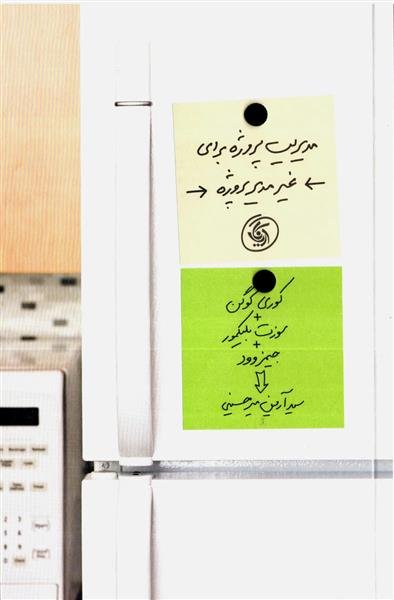 مدیریت پروژه برای
→ غیر مدیر پروژه ←
کوری کوگن
+
سوزت بلیکمور
+
جیمز وود
سید آرمین میرحسینی